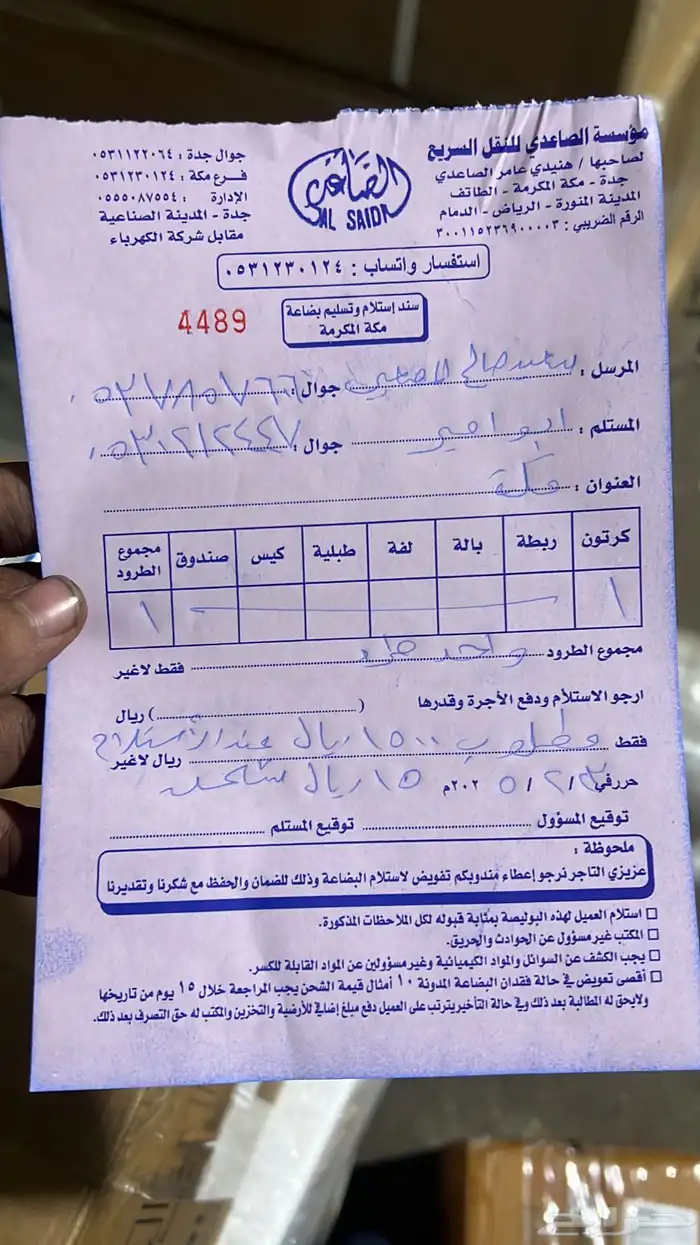 مؤسسة الصاعدي للنقل السريع
لصاحبها / هنيدي عامر الصاعدي
جدة - مكة المكرمة - الطائف
المدينة المنورة - الرياض - الدمام
الرقم الضريبي : ٣٠٠١١٥٢٣٦٩٠٠٠٠٣
الصاعدي
AL SAIDI
جوال جدة : ٠٥٣١١٢٢٠٦٤
فرع مكة : ٠٥٣١٢٣٠١٢٤
الإدارة : ٠٥٥٥٠٨٧٥٥٤
جدة - المدينة الصناعية
مقابل شركة الكهرباء
استفسار واتساب : ٠٥٣١٢٣٠١٢٤
سند إستلام وتسليم بضاعة
مكة المكرمة
4489
المرسل : سعيد صالح جوال : ٠٥٣٧٨٥٧٦٦
المستلم : ابو امير جوال : ٠٥٣٠٢١٢٤٤٧
العنوان : مكة
كرتون ربطة بالة لفة طبلية كيس صندوق مجموع الطرود
١ ١
مجموع الطرود واحد طرد فقط لاغير
ارجو الاستلام ودفع الأجرة وقدرها ( ) ريال
فقط مطلوب ١٥٠٠ ريال عند الأستلام ريال لاغير
حرر في ٢ / ٢ / ٢٠٢٥م ١٥ ريال شحن
توقيع المسؤول توقيع المستلم
ملحوظة :
عزيزي التاجر نرجو إعطاء مندوبكم تفويض لاستلام البضاعة وذلك للضمان والحفظ مع شكرنا وتقديرنا
استلام العميل لهذه البوليصة بمثابة قبوله لكل الملاحظات المذكورة.
المكتب غير مسؤول عن الحوادث والحريق.
يجب الكشف عن السوائل والمواد الكيميائية وغير مسؤولين عن المواد القابلة للكسر.
أقصى تعويض في حالة فقدان البضاعة المدونة ١٠ أمثال قيمة الشحن يجب المراجعة خلال ١٥ يوم من تاريخها
ولايحق له المطالبة بعد ذلك وفي حالة التأخير يترتب على العميل دفع مبلغ إضافي للأرضية والتخزين والمكتب له حق التصرف بعد ذلك.
حراج